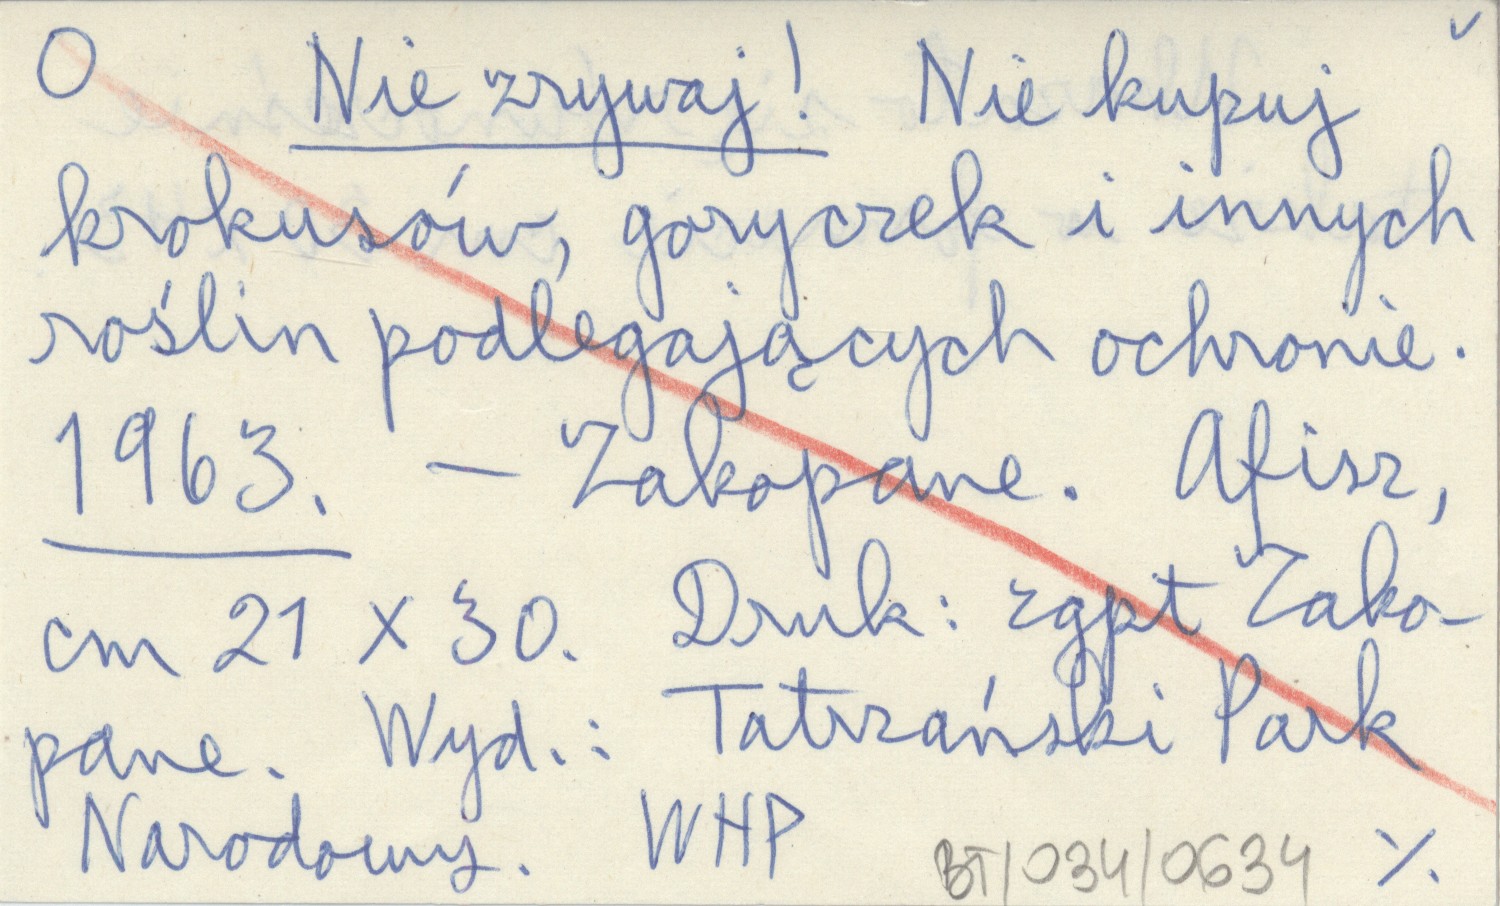 O Nie zrywaj! Nie kupuj
krokusów, goryczek i innych
roślin podlegających ochronie.
1963. — Zakopane. Afisz,
cm 21 x 30. Druk: zgpt Zako-
pane. Wyd.: Tatrzański Park
Narodowy. WHP
BT/034/0634 ./.